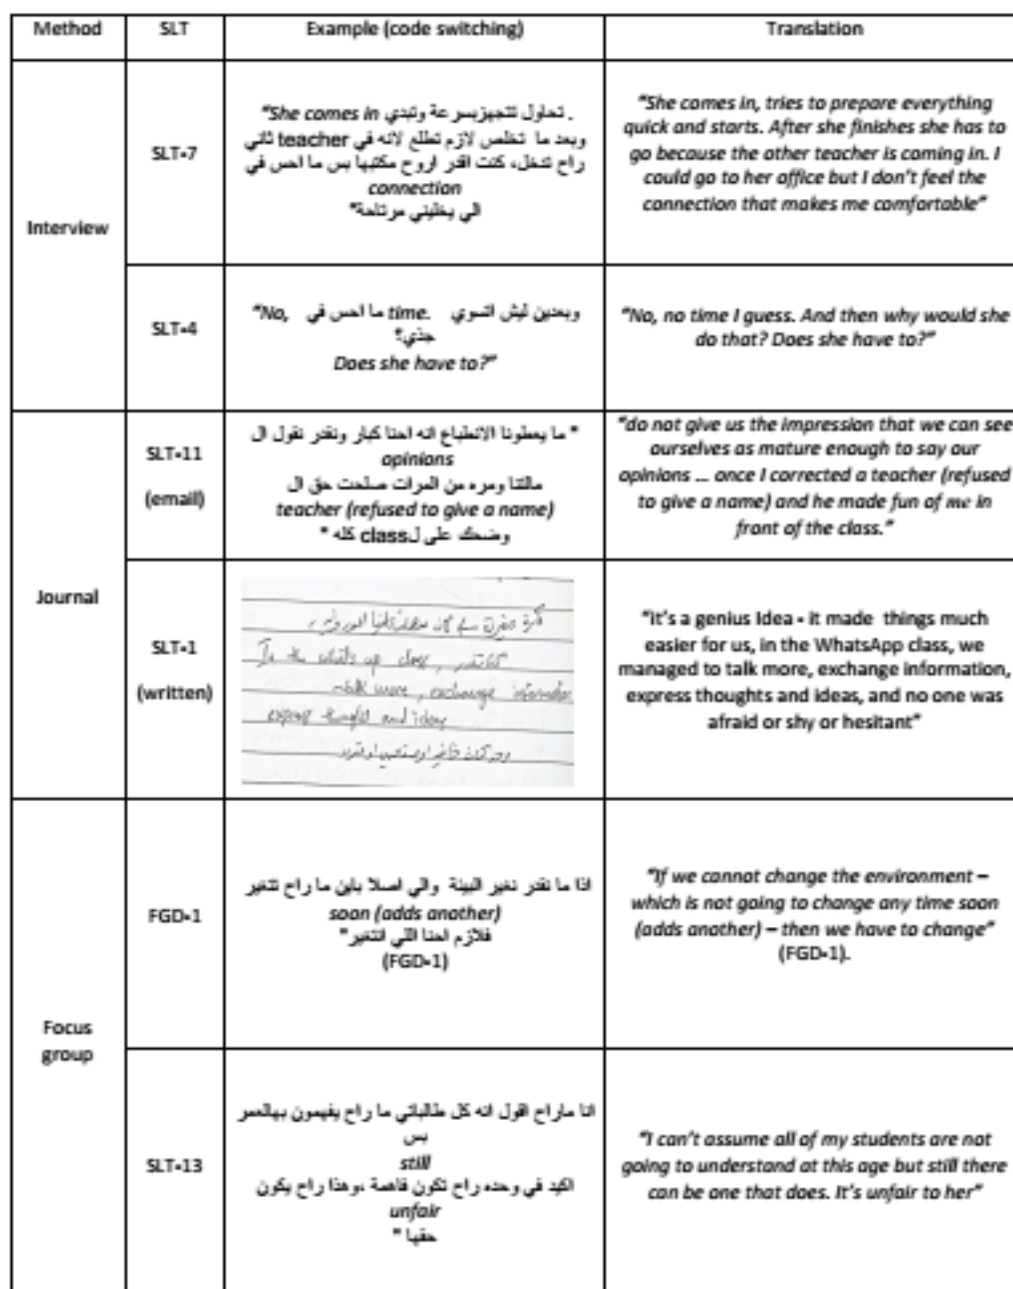 Method SLT Example (code switching) Translation
Interview
SLT-7
"She comes in تحاول تتجيزبسرعة وتبدي .
وبعد ما تخلص لازم تطلع لانه في teacher ثاني
راح تدخل، كنت اقدر اروح مكتبها بس ما احس في
connection
الي يخليني مرتاحة"
"She comes in, tries to prepare everything
quick and starts. After she finishes she has to
go because the other teacher is coming in. I
could go to her office but I don't feel the
connection that makes me comfortable"
SLT-4
"No, ما احس في time. وبعدين ليش اتسوي
جذي؟
Does she have to?"
"No, no time I guess. And then why would she
do that? Does she have to?"
Journal
SLT-11
(email)
" ما يعطونا الانطباع انه احنا كبار ونقدر نقول ال
opinions
مالتنا ومره من المرات صلحت حق ال
teacher (refused to give a name)
وضحك علي لclass كله "
"do not give us the impression that we can see
ourselves as mature enough to say our
opinions ... once I corrected a teacher (refused
to give a name) and he made fun of me in
front of the class."
SLT-1
(written)
In the whats up class,
talk more, exchange information
express thought and ideas
"It's a genius Idea - it made things much
easier for us, in the WhatsApp class, we
managed to talk more, exchange information,
express thoughts and ideas, and no one was
afraid or shy or hesitant"
Focus
group
FGD-1
اذا ما نقدر نغير البيئة والي اصلا باين ما راح تتغير
soon (adds another)
فلازم احنا اللي انتغير"
(FGD-1)
"If we cannot change the environment –
which is not going to change any time soon
(adds another) – then we have to change"
(FGD-1).
SLT-13
انا ماراح اقول انه كل طالباتي ما راح يفهمون بهالعمر
بس
still
اكيد في وحده راح تكون فاهمة ،وهذا راح يكون
unfair
حقها "
"I can't assume all of my students are not
going to understand at this age but still there
can be one that does. It's unfair to her"